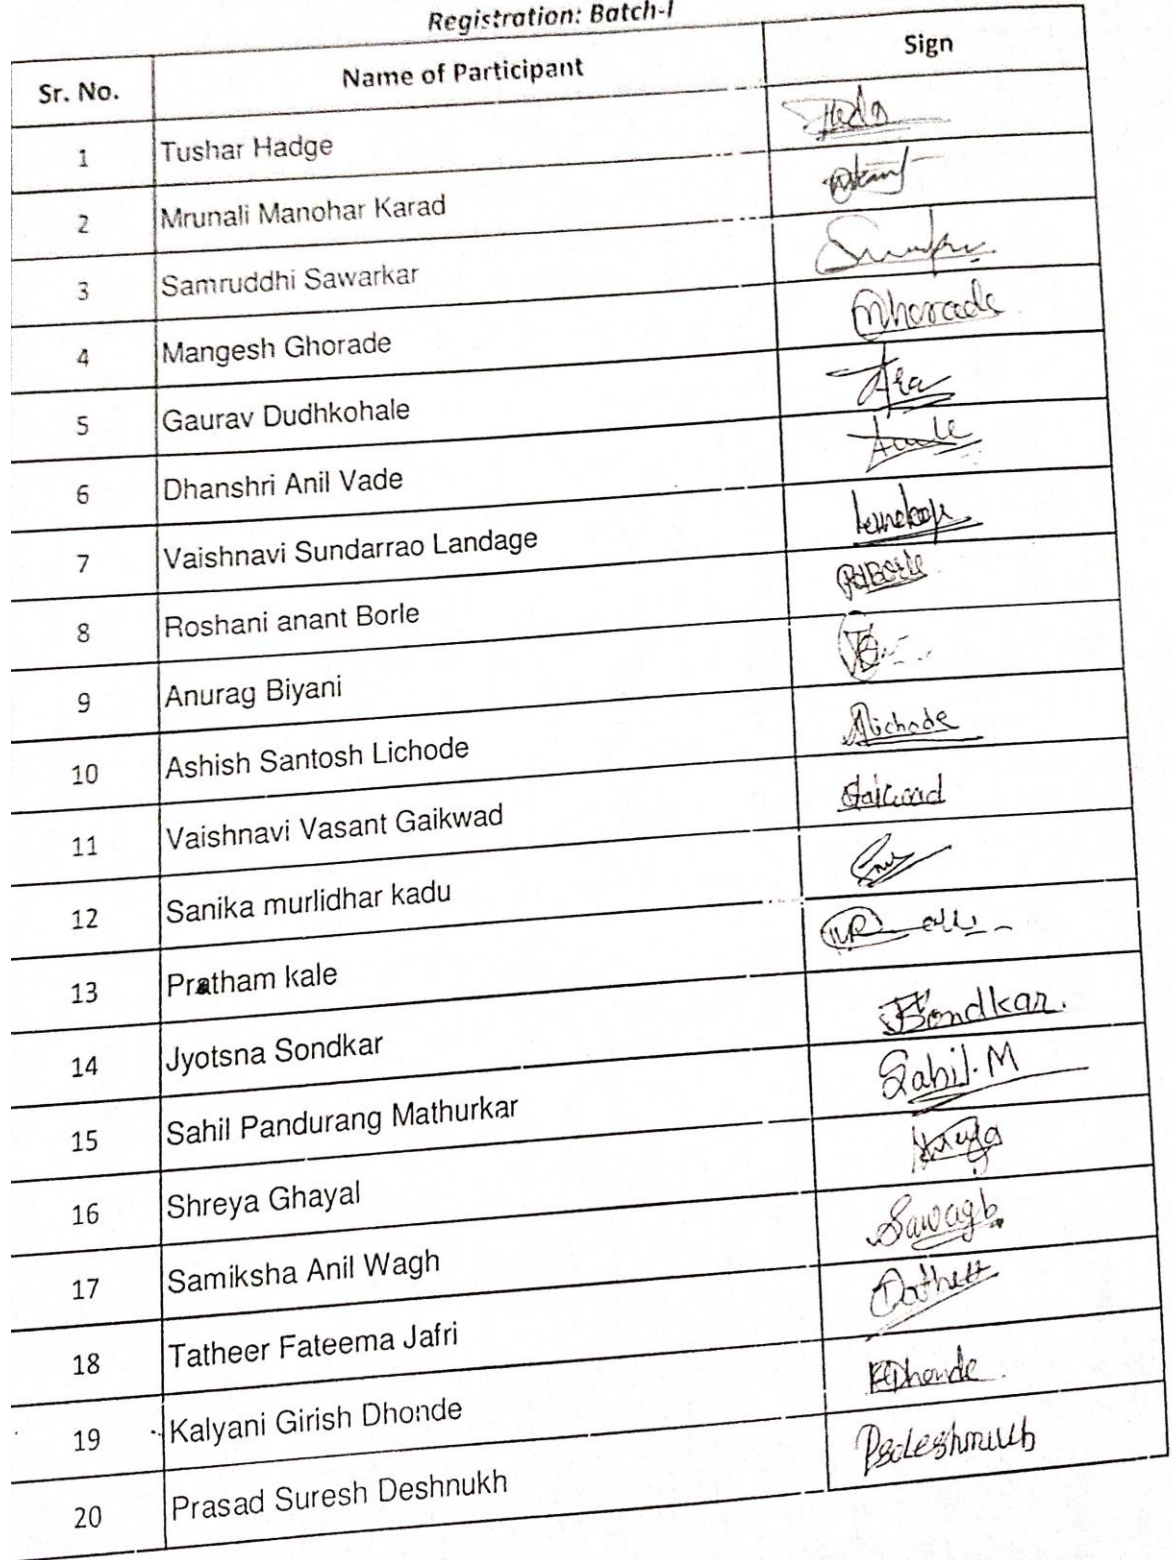 Registration: Batch-I
Sr. No. Name of Participant Sign
1 Tushar Hadge
2 Mrunali Manohar Karad
3 Samruddhi Sawarkar
4 Mangesh Ghorade Ghorade
5 Gaurav Dudhkohale
6 Dhanshri Anil Vade
7 Vaishnavi Sundarrao Landage
8 Roshani anant Borle
9 Anurag Biyani
10 Ashish Santosh Lichode Alichode
11 Vaishnavi Vasant Gaikwad Gaikwad
12 Sanika murlidhar kadu
13 Pratham kale
14 Jyotsna Sondkar Sondkar.
15 Sahil Pandurang Mathurkar Sahil.M
16 Shreya Ghayal
17 Samiksha Anil Wagh
18 Tatheer Fateema Jafri
19 Kalyani Girish Dhonde KDhonde
20 Prasad Suresh Deshnukh Psdeshmukh